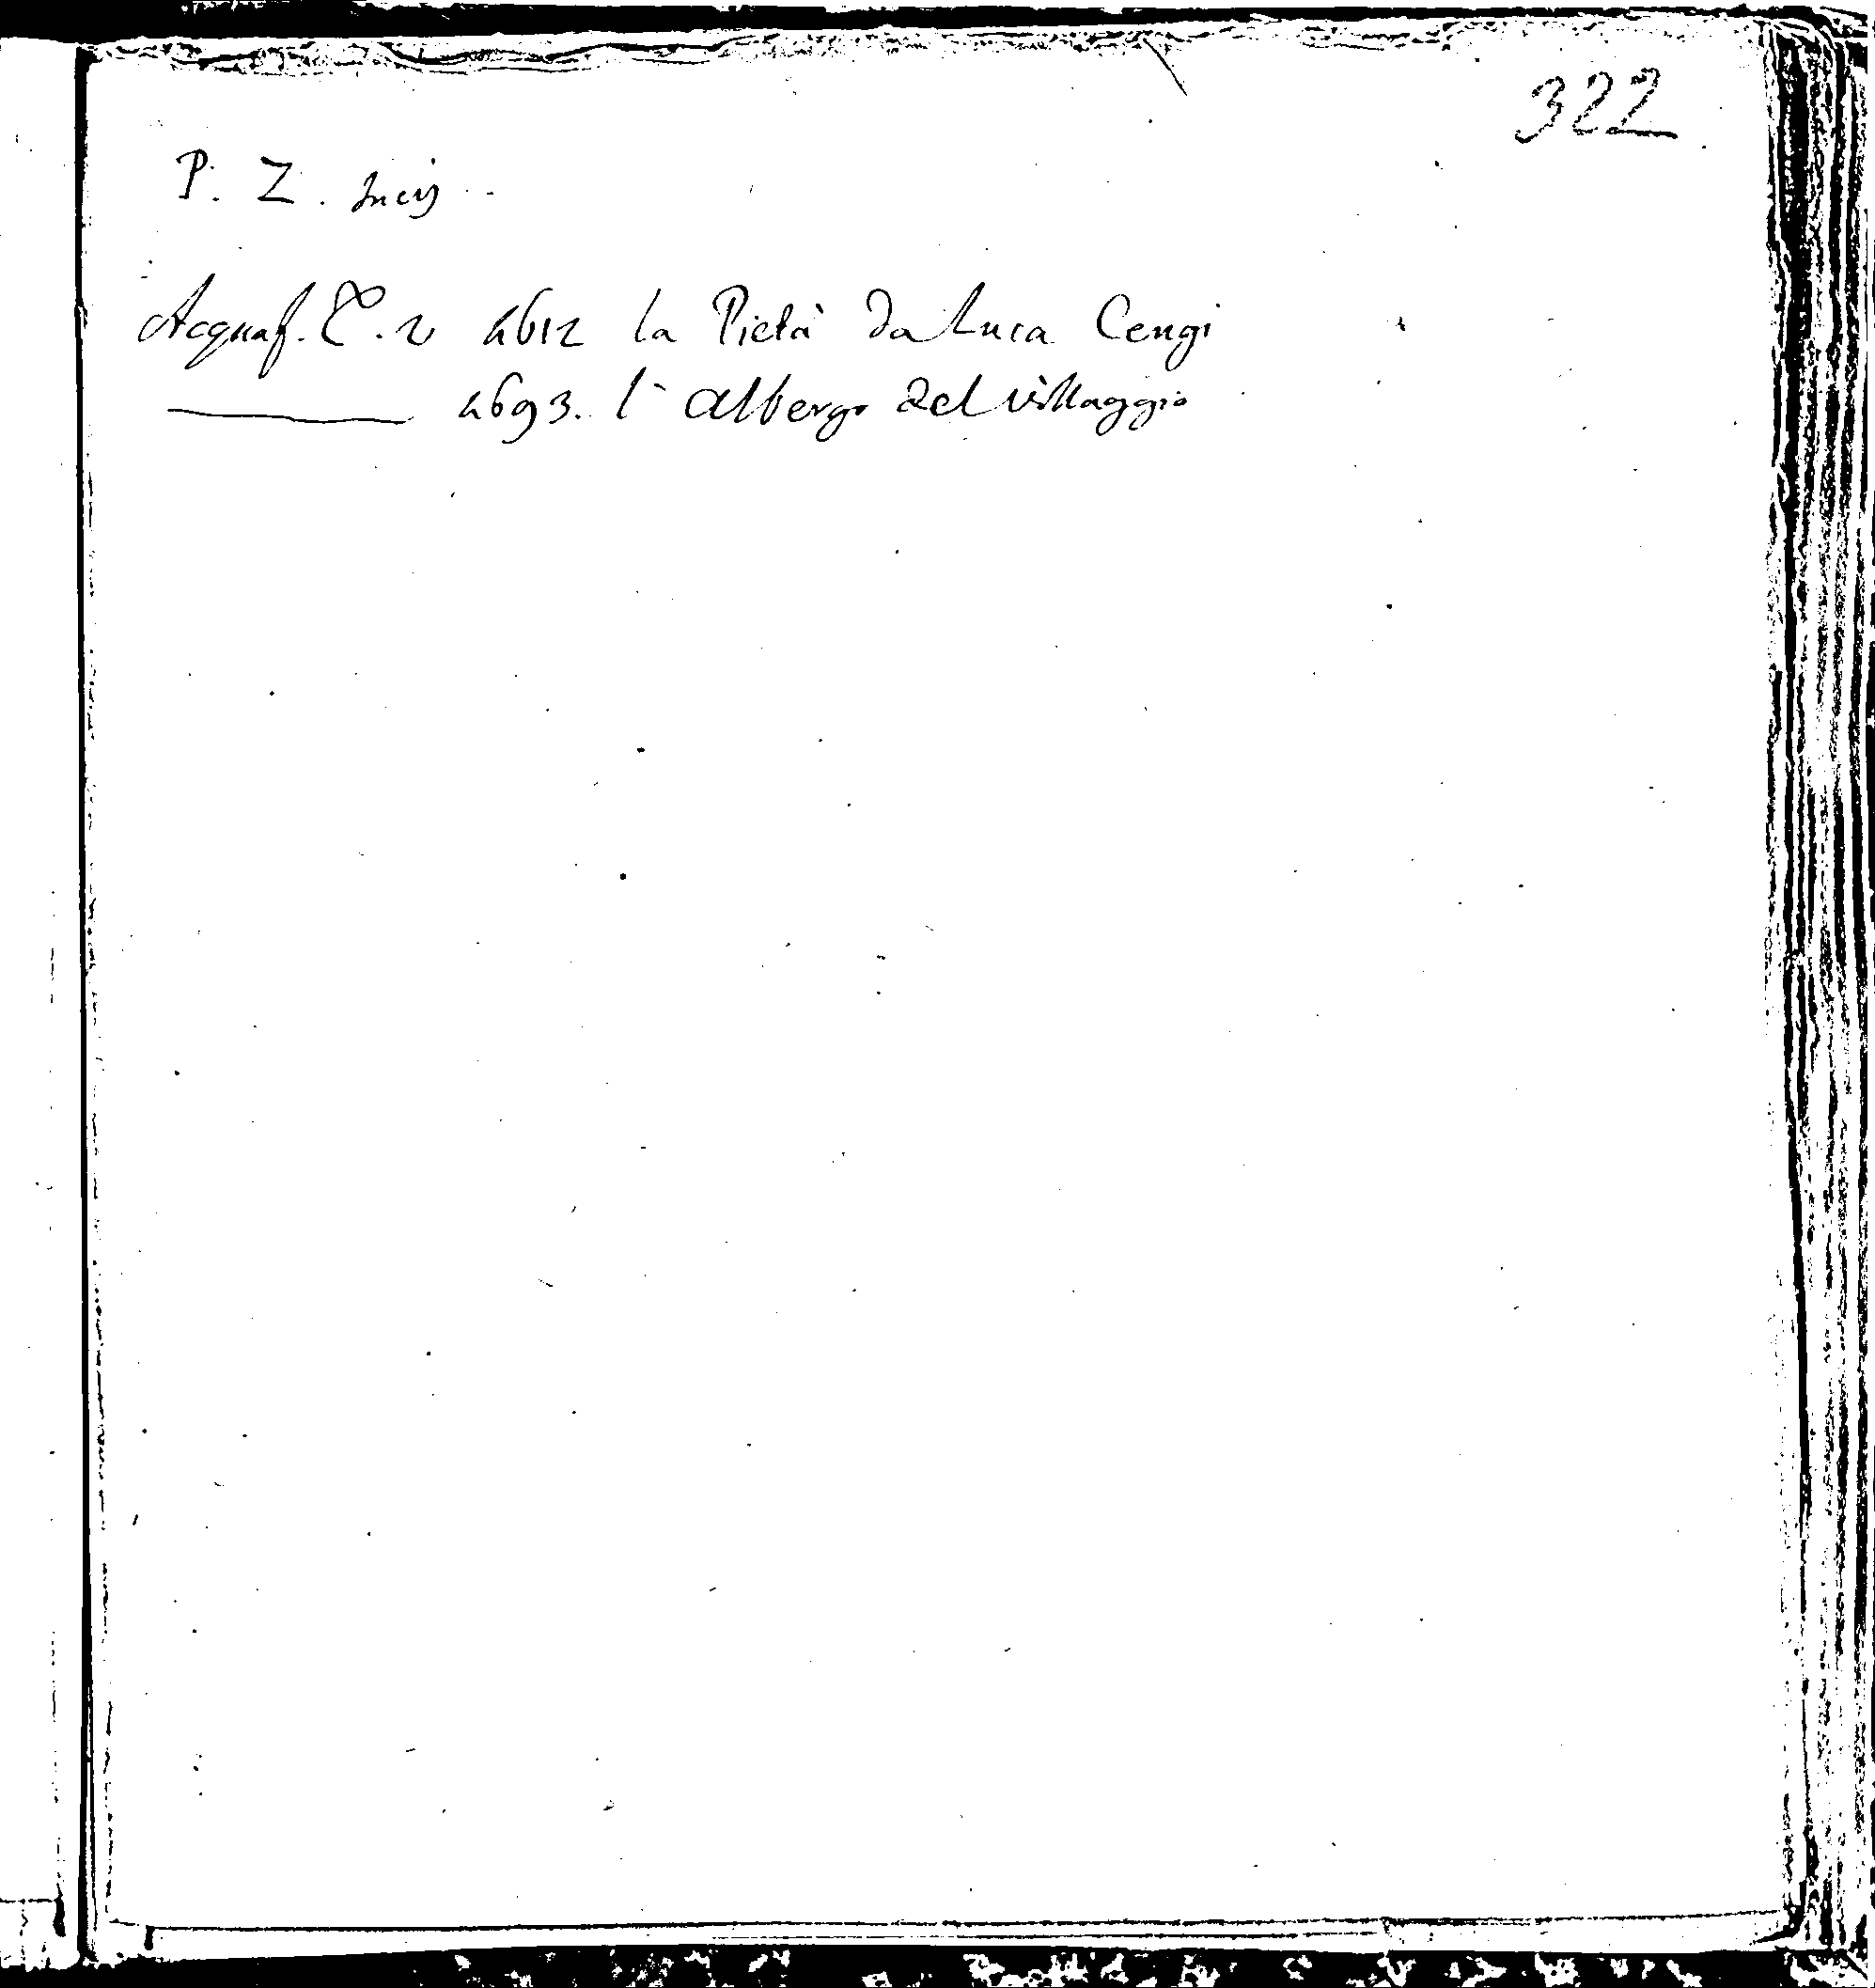 322
P. Z. Incis
Acquaf. T. 2 4612 la Pietà da Luca Cengi
4693. l' albergo del villaggio